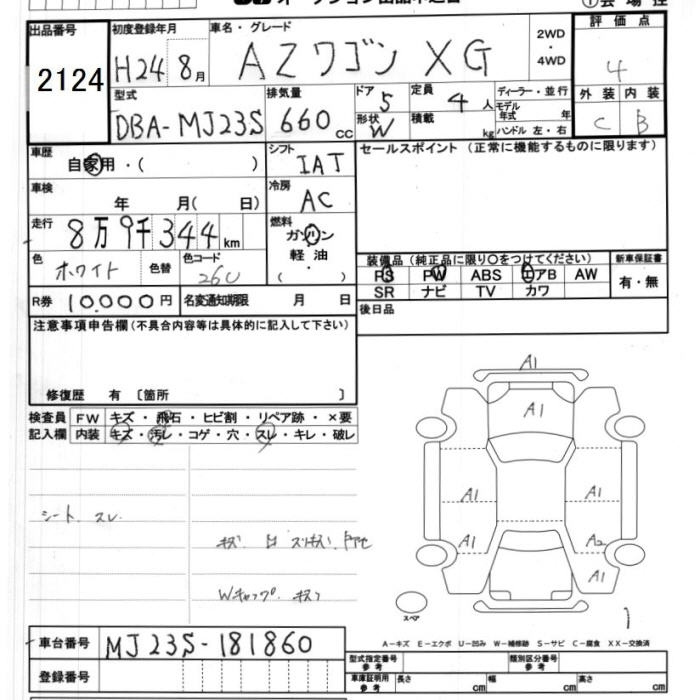 オークション出品申込書
①会場控
出品番号
2124
初度登録年月
H24 8月
車名・グレード
AZワゴン XG
2WD
・
4WD
評価点
4
外装 内装
C B
型式
DBA-MJ23S
排気量
660cc
ドア 5
形状 W
定員 4人
積載 kg
ディーラー・並行
モデル年式 年
ハンドル 左・右
車歴
自家用・( )
シフト
IAT
セールスポイント (正常に機能するものに限ります)
車検
年 月( 日)
冷房
AC
走行
8万9千344km
燃料
ガソリン
軽油
( )
色
ホワイト
色替
色コード
26U
装備品 (純正品に限り〇をつけてください)
PS PW ABS エアB AW
SR ナビ TV カワ
新車保証書
有・無
R券 10,000円
名変通知期限 月 日
後日品
注意事項申告欄(不具合内容等は具体的に記入して下さい)
修復歴 有 〔箇所 〕
検査員
記入欄
FW キズ・飛石・ヒビ割・リペア跡・×要
内装 キズ・汚レ・コゲ・穴・スレ・キレ・破レ
シート スレ
Wキャップ キズ
A1
A1
A1
A1
A1
A2
A1
スペア
A-キズ E-エクボ U-凹み W-補修跡 S-サビ C-腐食 XX-交換済
車台番号
MJ23S-181860
登録番号
型式指定番号
参考
類別区分番号
参考
車庫証明用
参考
長さ cm
幅 cm
高さ cm